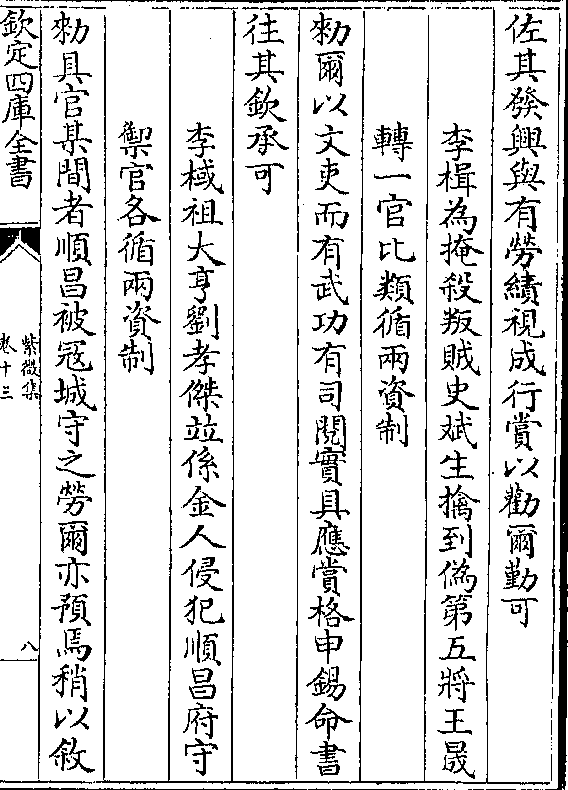 佐其發興與有勞績視成行賞以勸爾勤可
李楫為掩殺叛賊史斌生擒到偽第五將王晟
轉一官比類循兩資制
勑爾以文吏而有武功有司閱實具應賞格申錫命書
往其欽承可
李棫祖大亨劉孝傑並係金人侵犯順昌府守
禦官各循兩資制
勑具官某間者順昌被冦城守之勞爾亦預焉稍以敘
欽定四庫全書
紫微集
卷十三
八